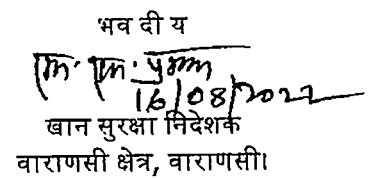 भवदीय
एम. एम. 
16/08/2022
खान सुरक्षा निदेशक
वाराणसी क्षेत्र, वाराणसी।